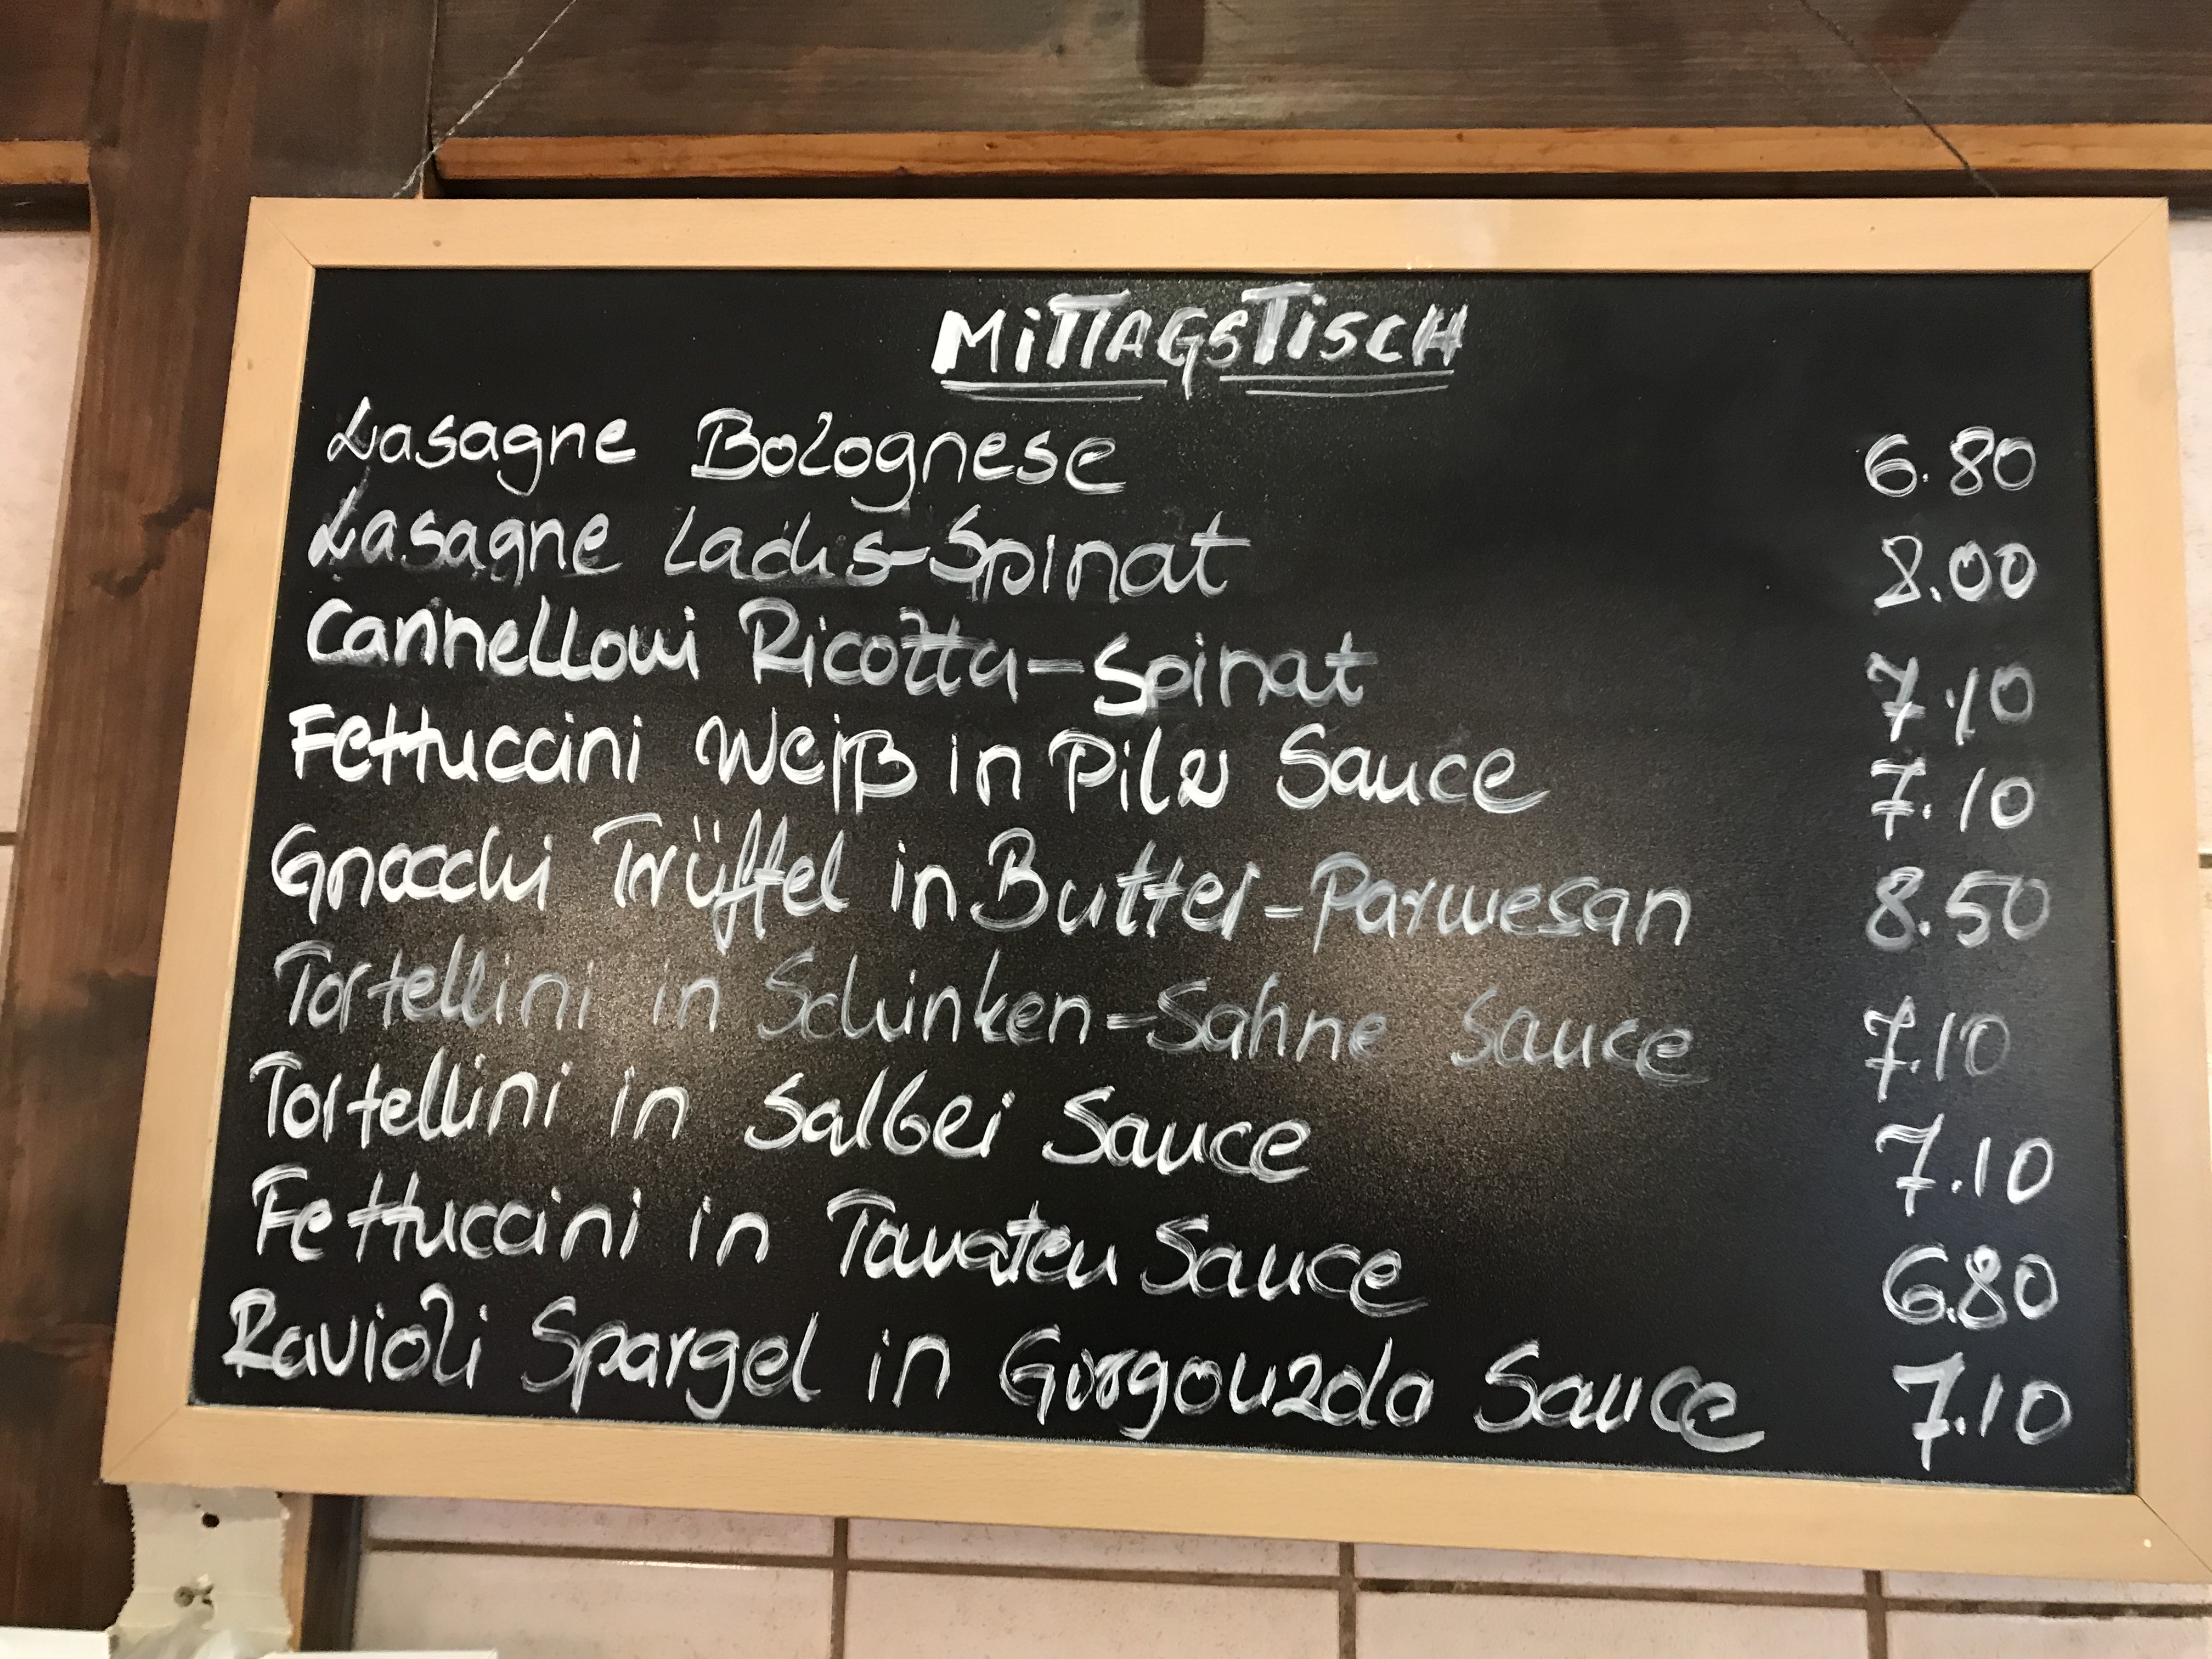 MiTTAGSTiSCH
Lasagne Bolognese 6.80
Lasagne Lachs-Spinat 8.00
Cannelloni Ricotta-Spinat 7.10
Fettuccini Weiß in Pilz Sauce 7.10
Gnocchi Trüffel in Butter-Parmesan 8.50
Tortellini in Schinken-Sahne Sauce 7.10
Tortellini in Salbei Sauce 7.10
Fettuccini in Tomaten Sauce 6.80
Ravioli Spargel in Gorgonzola Sauce 7.10